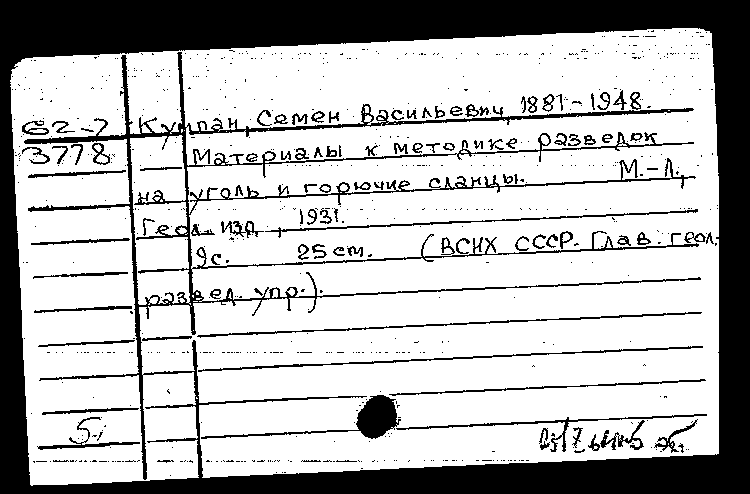 62-7 Кумпан, Семен Васильевич, 1881-1948.
3778 Материалы к методике разведок
на уголь и горючие сланцы. М.-Л.,
Геол. изд., 1931.
9с. 25 cm. (ВСНХ СССР. Глав. геол.-
развед. упр.).
5.